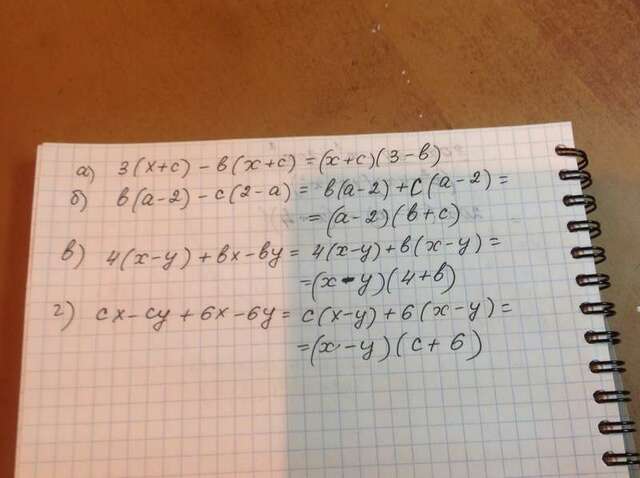 а) 3(x+c) - в(x+c) = (x+c)(3-в)
б) в(a-2) - c(2-a) = в(a-2) + c(a-2) =
= (a-2)(в+c)
в) 4(x-y) + вx - вy = 4(x-y) + в(x-y) =
= (x-y)(4+в)
г) cx - cy + 6x - 6y = c(x-y) + 6(x-y) =
= (x-y)(c+6)